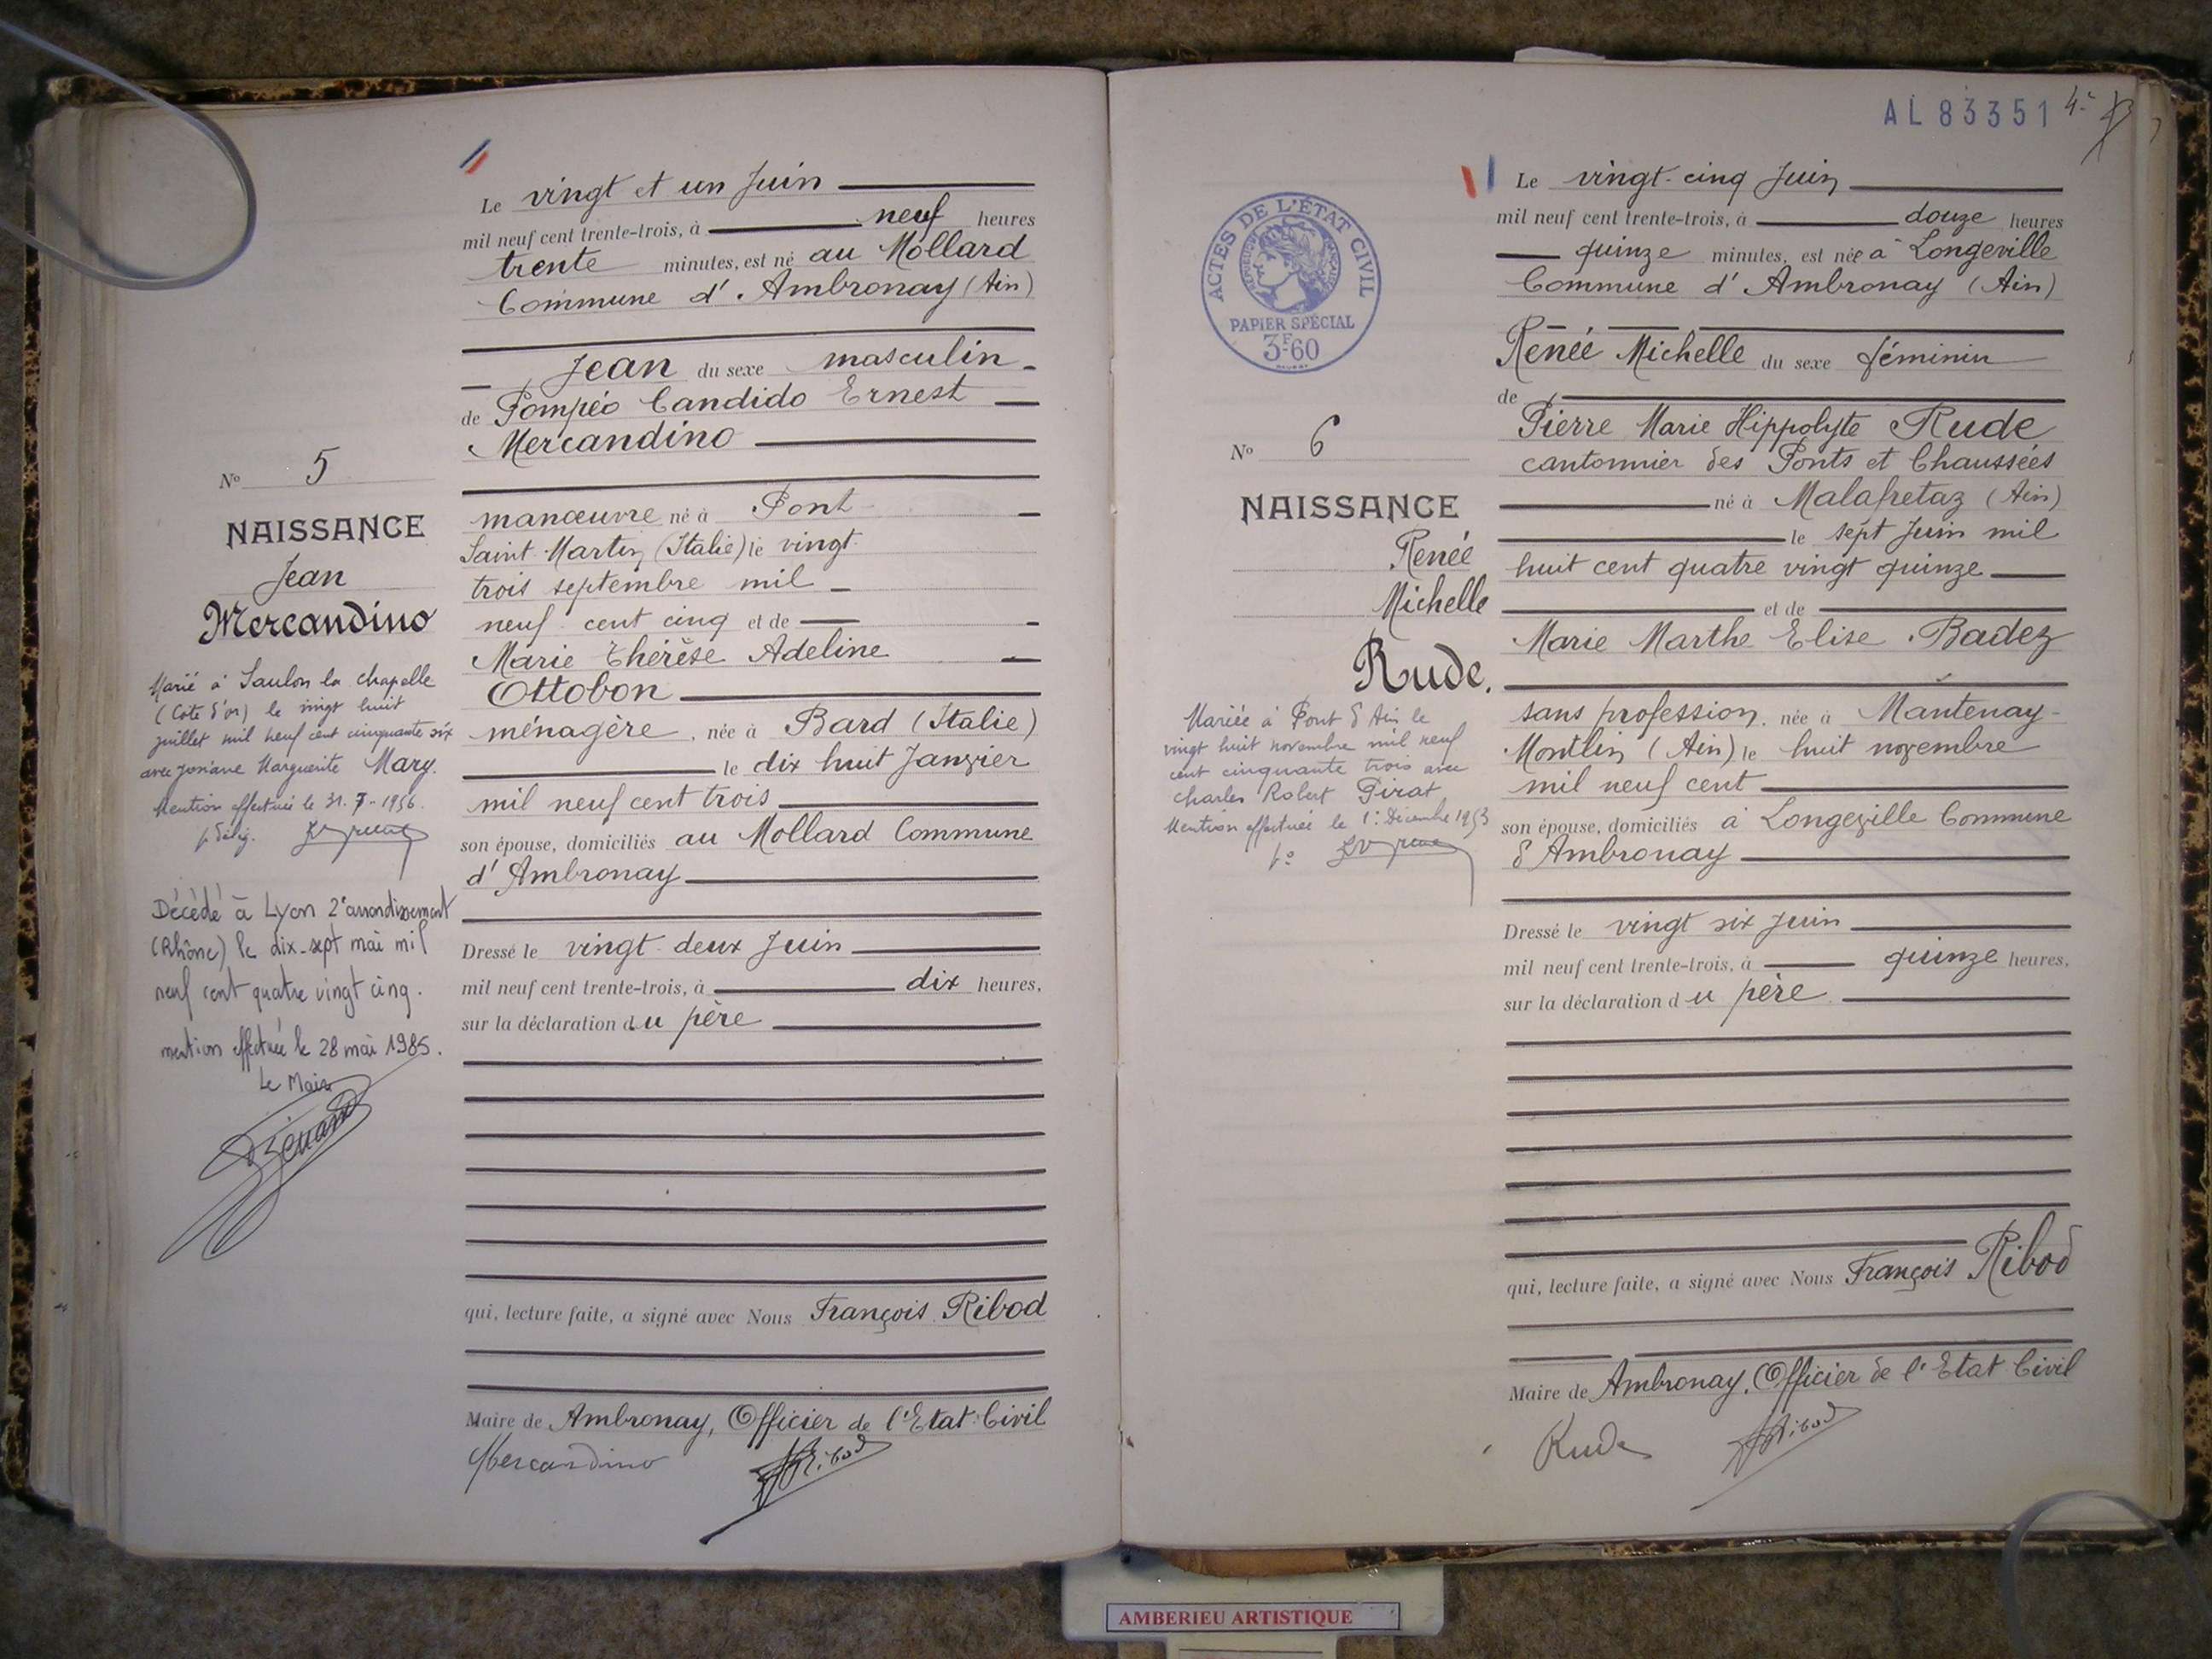 Le vingt et un Juin
mil neuf cent trente-trois, à neuf heures
trente minutes, est né au Mollard
Commune d'Ambronay (Ain)
Jean du sexe masculin
de Pompéo Candido Ernest
Mercandino
manœuvre né à Pont
Saint Martin (Italie) le vingt
trois septembre mil
neuf cent cinq et de
Marie Thérèse Adeline
Ottobon
ménagère, née à Bard (Italie)
le dix huit Janvier
mil neuf cent trois
son épouse, domiciliés au Mollard Commune
d'Ambronay
Dressé le vingt deux Juin
mil neuf cent trente-trois, à dix heures,
sur la déclaration du père
qui, lecture faite, a signé avec Nous François Ribod
Maire de Ambronay, Officier de l'Etat Civil
Mercandino Ribod
No 5
NAISSANCE
Jean
Mercandino
Marié à Saulon la chapelle
(Côte d'or) le vingt huit
juillet mil neuf cent cinquante six
avec Josiane Marguerite Mary.
Mention effectuée le 31-7-1956.
p. délég.
Décédé à Lyon 2e arrondissement
(Rhône) le dix-sept mai mil
neuf cent quatre vingt cinq.
mention effectuée le 28 mai 1985.
Le Maire
AL 83351
Le vingt-cinq Juin
mil neuf cent trente-trois, à douze heures
quinze minutes, est née à Longeville
Commune d'Ambronay (Ain)
Renée Michelle du sexe féminin
de
Pierre Marie Hippolyte Rude
cantonnier des Ponts et Chaussées
né à Malafretaz (Ain)
le sept Juin mil
huit cent quatre vingt quinze
et de
Marie Marthe Elise Badez
sans profession, née à Mantenay-
Montlin (Ain) le huit novembre
mil neuf cent
son épouse, domiciliés à Longeville Commune
d'Ambronay
Dressé le vingt six Juin
mil neuf cent trente-trois, à quinze heures,
sur la déclaration du père
qui, lecture faite, a signé avec Nous François Ribod
Maire de Ambronay, Officier de l'Etat Civil
Rude Ribod
ACTES DE L'ÉTAT CIVIL
RÉPUBLIQUE FRANÇAISE
PAPIER SPÉCIAL
3F60
No 6
NAISSANCE
Renée
Michelle
Rude.
Mariée à Pont d'Ain le
vingt huit novembre mil neuf
cent cinquante trois avec
Charles Robert Pirat
Mention effectuée le 1er Décembre 1953
AMBERIEU ARTISTIQUE